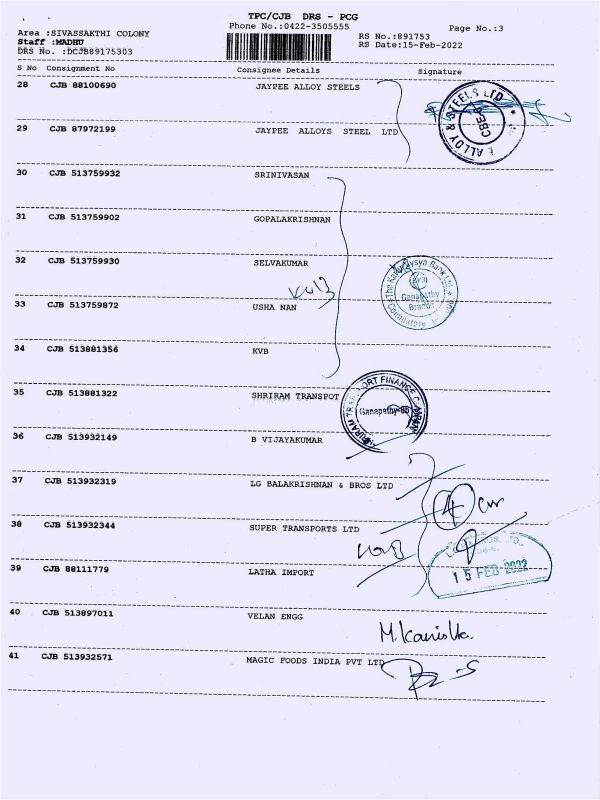 TPC/CJB DRS - PCG
Phone No.:0422-3505555
Page No.:3
Area :SIVASSAKTHI COLONY
Staff :MADHU
DRS No. :DCJB89175303
RS No.:891753
RS Date:15-Feb-2022
S No Consignment No Consignee Details Signature
28 CJB 88100690 JAYPEE ALLOY STEELS
29 CJB 87972199 JAYPEE ALLOYS STEEL LTD
ALLOY & STEELS LTD
CBE
30 CJB 513759932 SRINIVASAN
31 CJB 513759902 GOPALAKRISHNAN
32 CJB 513759930 SELVAKUMAR
33 CJB 513759872 USHA NAN
The Karur Vysya Bank Ltd.
Ganapathy
Branch
Coimbatore
34 CJB 513881356 KVB
35 CJB 513881322 SHRIRAM TRANSPOT
Ganapathy-
36 CJB 513932149 B VIJAYKUMAR
37 CJB 513932319 LG BALAKRISHNAN & BROS LTD
38 CJB 513932344 SUPER TRANSPORTS LTD
39 CJB 88111779 LATHA IMPORT
15 FEB 2022
40 CJB 513897011 VELAN ENGG
41 CJB 513932571 MAGIC FOODS INDIA PVT LTD